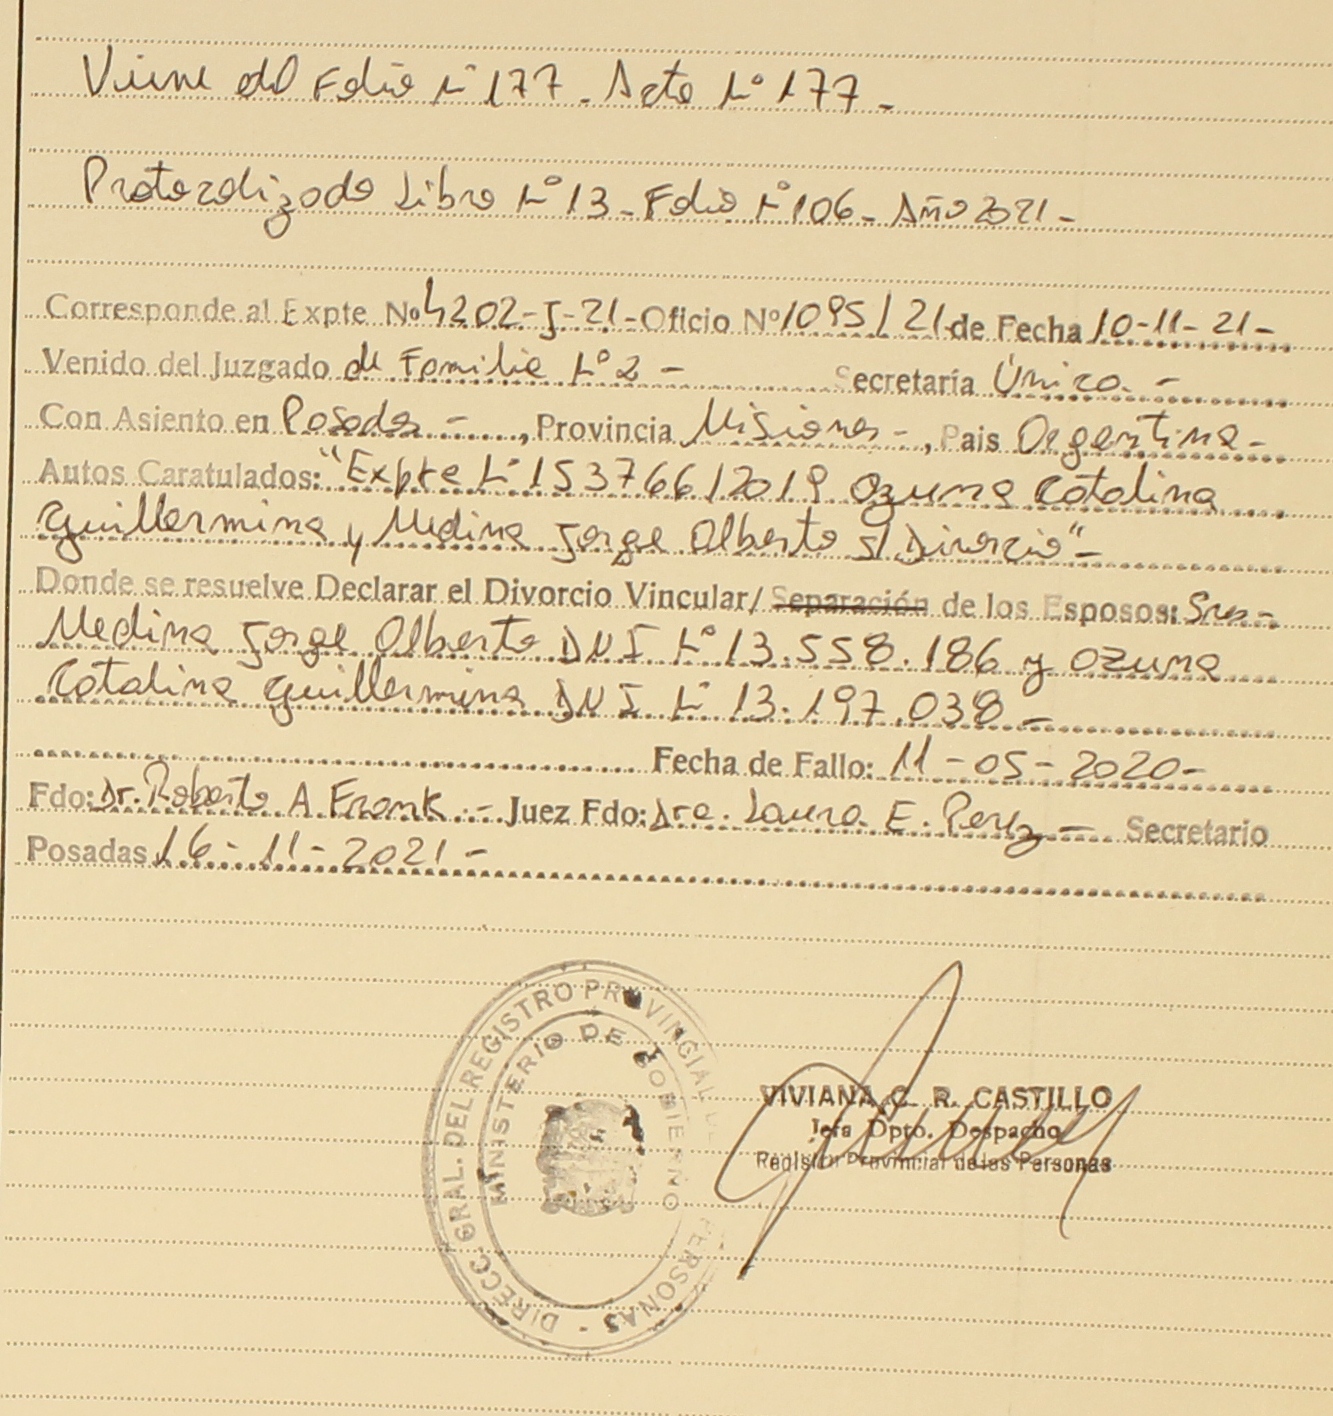 Viene del Folio N° 177 - Acta N° 177 -
Protocolizado Libro N° 13 - Folio N° 106 - Año 2021 -
Corresponde al Expte No 4202-J-21-Oficio Nº 1095/21 de Fecha 10-11-21-
Venido del Juzgado de Familia N° 2 - Secretaría Única. -
Con Asiento en Posadas - , Provincia Misiones - , Pais Argentina -
Autos Caratulados: "Expte N° 153766/2019 Ozuna Catalina
Guillermina y Medina Jorge Alberto s/ Divorcio" -
Donde se resuelve Declarar el Divorcio Vincular/ Separación de los Esposos: Sres -
Medina Jorge Alberto DNI N° 13.558.186 y Ozuna
Catalina Guillermina DNI N° 13.197.038 -
Fecha de Fallo: 11-05-2020-
Fdo: Dr. Roberto A Frank .- Juez Fdo: Dra. Laura E. Perez - Secretario
Posadas 16-11-2021 -
DIRECC. GRAL. DEL REGISTRO PROVINCIAL DE PERSONAS -
MINISTERIO DE GOBIERNO
VIVIANA C. R. CASTILLO
Jefa Dpto. Despacho
Registro Provincial de las Personas